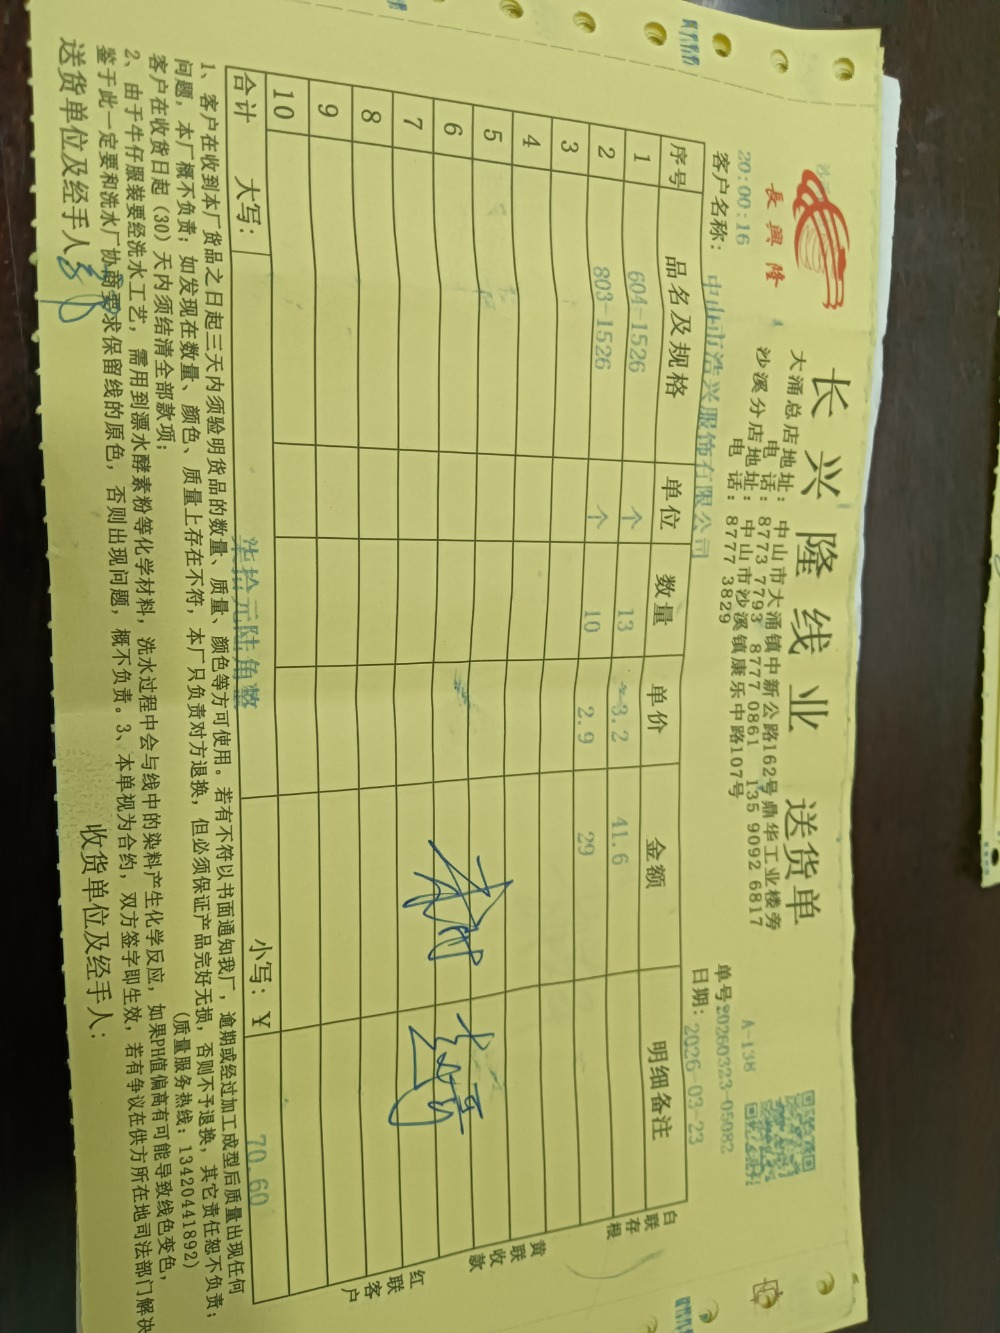 長興隆
长兴隆线业 送货单
大涌总店地址：中山市大涌镇中新公路162号鼎华工业楼旁
电 话：8773 7793 8777 0861 135 9092 6817
沙溪分店地址：中山市沙溪镇康乐中路107号
电 话：8777 3829
A-138
单号：20260323-05082
20:00:16
日期：2026-03-23
客户名称：中山市浩兴服饰有限公司
序号 品名及规格 单位 数量 单价 金额 明细备注
1 604-1526 个 13 3.2 41.6
2 803-1526 个 10 2.9 29
3
4
5
6
7
8
9
10
合计 大写： 柒拾元陆角整 小写：￥ 70.60
白联存根
黄联收款
红联客户
1、客户在收到本厂货品之日起三天内须验明货品的数量、质量、颜色等方可使用。若有不符以书面通知我厂，逾期或经过加工成型后质量出现任何
问题，本厂概不负责；如发现在数量、颜色、质量上存在不符，本厂只负责对方退换，但必须保证产品完好无损，否则不予退换，其它责任恕不负责；
客户在收货日起（30）天内须结清全部款项；（质量服务热线：13420441892）
2、由于牛仔服装要经洗水工艺，需用到漂水酵素粉等化学材料，洗水过程中会与线中的染料产生化学反应，如果PH值偏高有可能导致线色变色，
鉴于此一定要和洗水厂协商要求保留线的原色，否则出现问题，概不负责。3、本单视为合约，双方签字即生效，若有争议在供方所在地司法部门解决
送货单位及经手人： 收货单位及经手人：